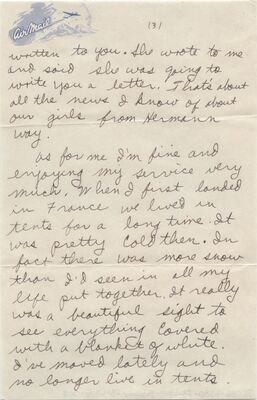 Air Mail
(3)
written to you. She wrote to me
and said she was going to
write you a letter. That's about
all the news I know of about
our girls from Hermann
way.
As for me I'm fine and
enjoying my service very
much. When I first landed
in France we lived in
tents for a long time. It
was pretty cold then. In
fact there was more snow
than I'd seen in all my
life put together. It really
was a beautiful sight to
see everything covered
with a blanket of white.
I've moved lately and
no longer live in tents.